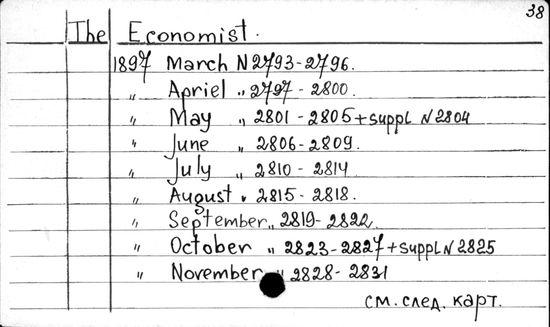 38
The Economist.
1897 March N 2793-2796.
" Apriel " 2797-2800.
" May " 2801-2805 + suppl N 2804
" June " 2806-2809.
" July " 2810-2814.
" August " 2815-2818.
" September " 2819-2822.
" October " 2823-2827 + suppl N 2825
" November " 2828-2831
см. след. карт.